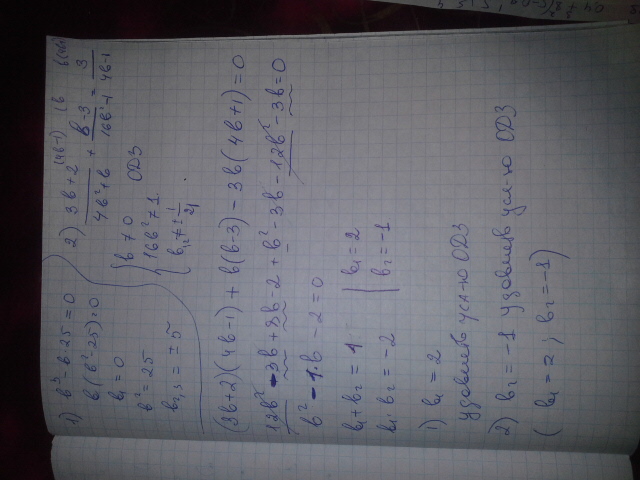 1) b³ - b·25 = 0
b(b² - 25) = 0
b₁ = 0
b² = 25
b₂,₃ = ±5
2) (3b+2)/(4b²+b) (4b-1) + (b-3)/(16b²-1) (b = 3/(4b-1) b(4b
b ≠ 0 ОДЗ
16b² ≠ 1
b₁,₂ ≠ ±
(3b+2)(4b-1) + b(b-3) - 3b(4b+1) = 0
12b² - 3b + 8b - 2 + b² - 3b - 12b² - 3b = 0
b² - 1·b - 2 = 0
b₁ + b₂ = 1 b₁ = 2
b₁·b₂ = -2 b₂ = -1
1) b₁ = 2
удовлетв усл-ю ОДЗ
2) b₂ = -1 удовлетв усл-ю ОДЗ
(b₁ = 2; b₂ = -1)